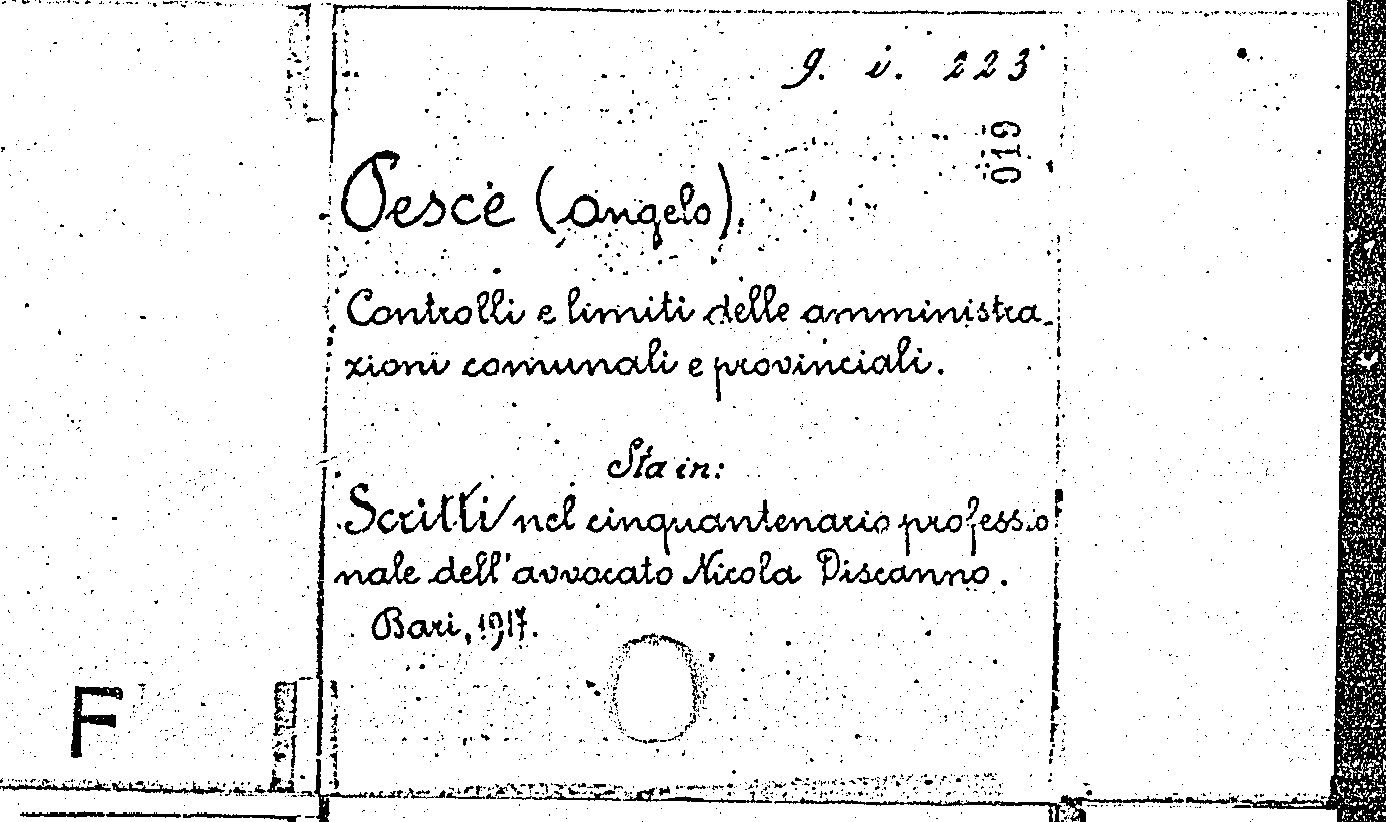 9. i. 223
019
Pesce (Angelo).
Controlli e limiti delle amministra_
zioni comunali e provinciali.
Sta in:
Scritti nel cinquantenario professio
nale dell'avvocato Nicola Discanno.
Bari, 1917.
F